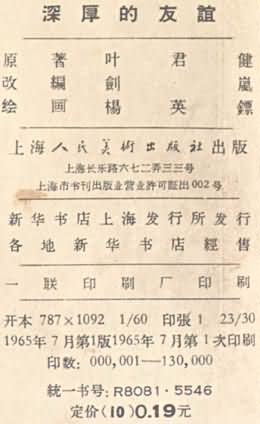 深厚的友誼
原著 叶君健
改編 劍嵐
绘画 楊英鏢
上海人民美術出版社出版
上海长乐路六七二弄三三号
上海市书刊出版业营业許可証出002号
新华书店上海发行所发行
各地新华书店經售
一联印刷厂印刷
开本 787×1092 1/60 印張 1 23/30
1965年7月第1版 1965年7月第1次印刷
印数: 000,001—130,000
統一书号: R8081·5546
定价(10)0.19元